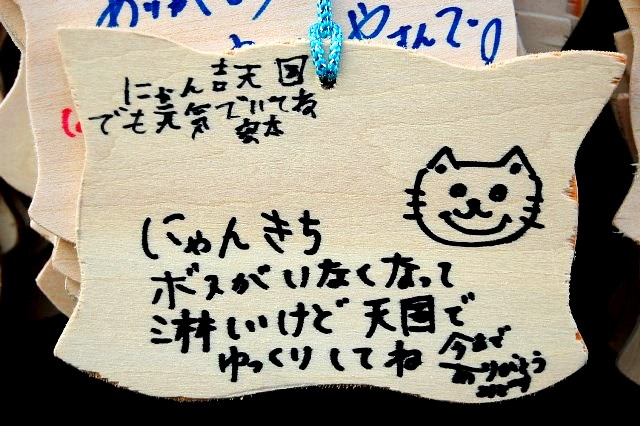 さんで
にゃん吉天国
でも元気でいてね
安本
にゃんきち
ボスがいなくなって
淋しいけど天国で
ゆっくりしてね
今まで
ありがとう